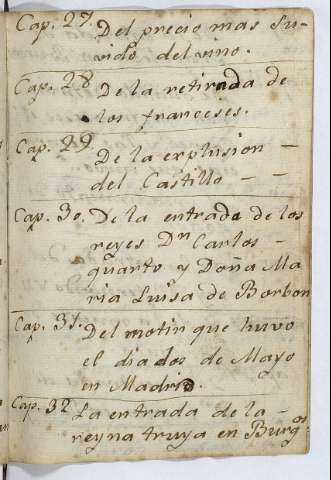 Cap. 27. Del precio mas su-
vido del vino.
Cap. 28 De la retirada de
los franceses.
Cap. 29. De la explusion -
del Castillo - -
Cap. 30. De la entrada de los
reyes Dn Carlos -
quarto y Doña Ma
ria Luisa de Borbon
Cap. 31. Del motin que huvo
el dia dos de Mayo
en Madrid.
Cap. 32 La entrada de la -
reyna truya en Burgos.